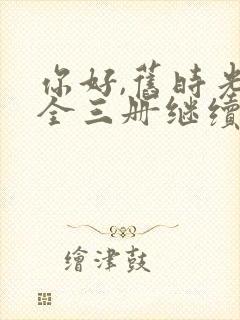 你好,舊時光
全三册继续
繪津鼓